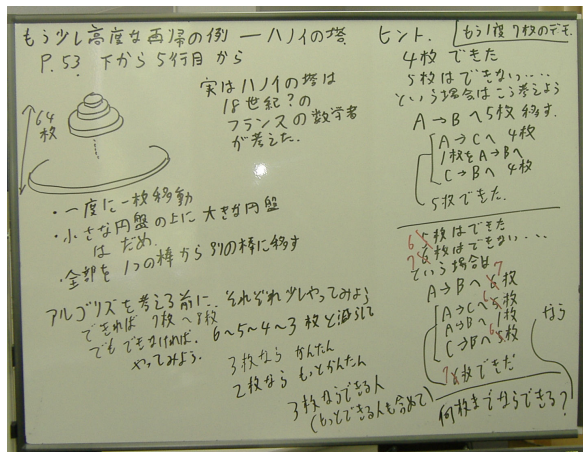 もう少し高度な再帰の例 ― ハノイの塔.
P.53 下から5行目から
64枚
実はハノイの塔は
18世紀?の
フランスの数学者
が考えた.
・一度に一枚移動
・小さな円盤の上に大きな円盤
は だめ.
・全部を1つの棒から別の棒に移す
アルゴリズムを考える前に、それぞれ少しやってみよう
できれば 7枚~8枚
でも できなければ. 6~5~4~3 枚と減らして
やってみよう.
3枚なら かんたん
2枚なら もっとかんたん
3枚ならできる人
(もっとできる人も含めて)
ヒント.
もう1度 7枚のデモ.
4枚 できた
5枚はできない....
という場合はこう考えよう
A→B へ5枚 移す.
A→Cへ 4枚
1枚をA→Bへ
C→Bへ 4枚
5枚できた.
6 5枚はできた
7 6枚はできない....
という場合は
A→B へ 6 7 枚
A→Cへ 5 6 枚
A→Bへ 1枚
C→Bへ 5 6 枚
7 6枚できた
なら
何枚までならできる?